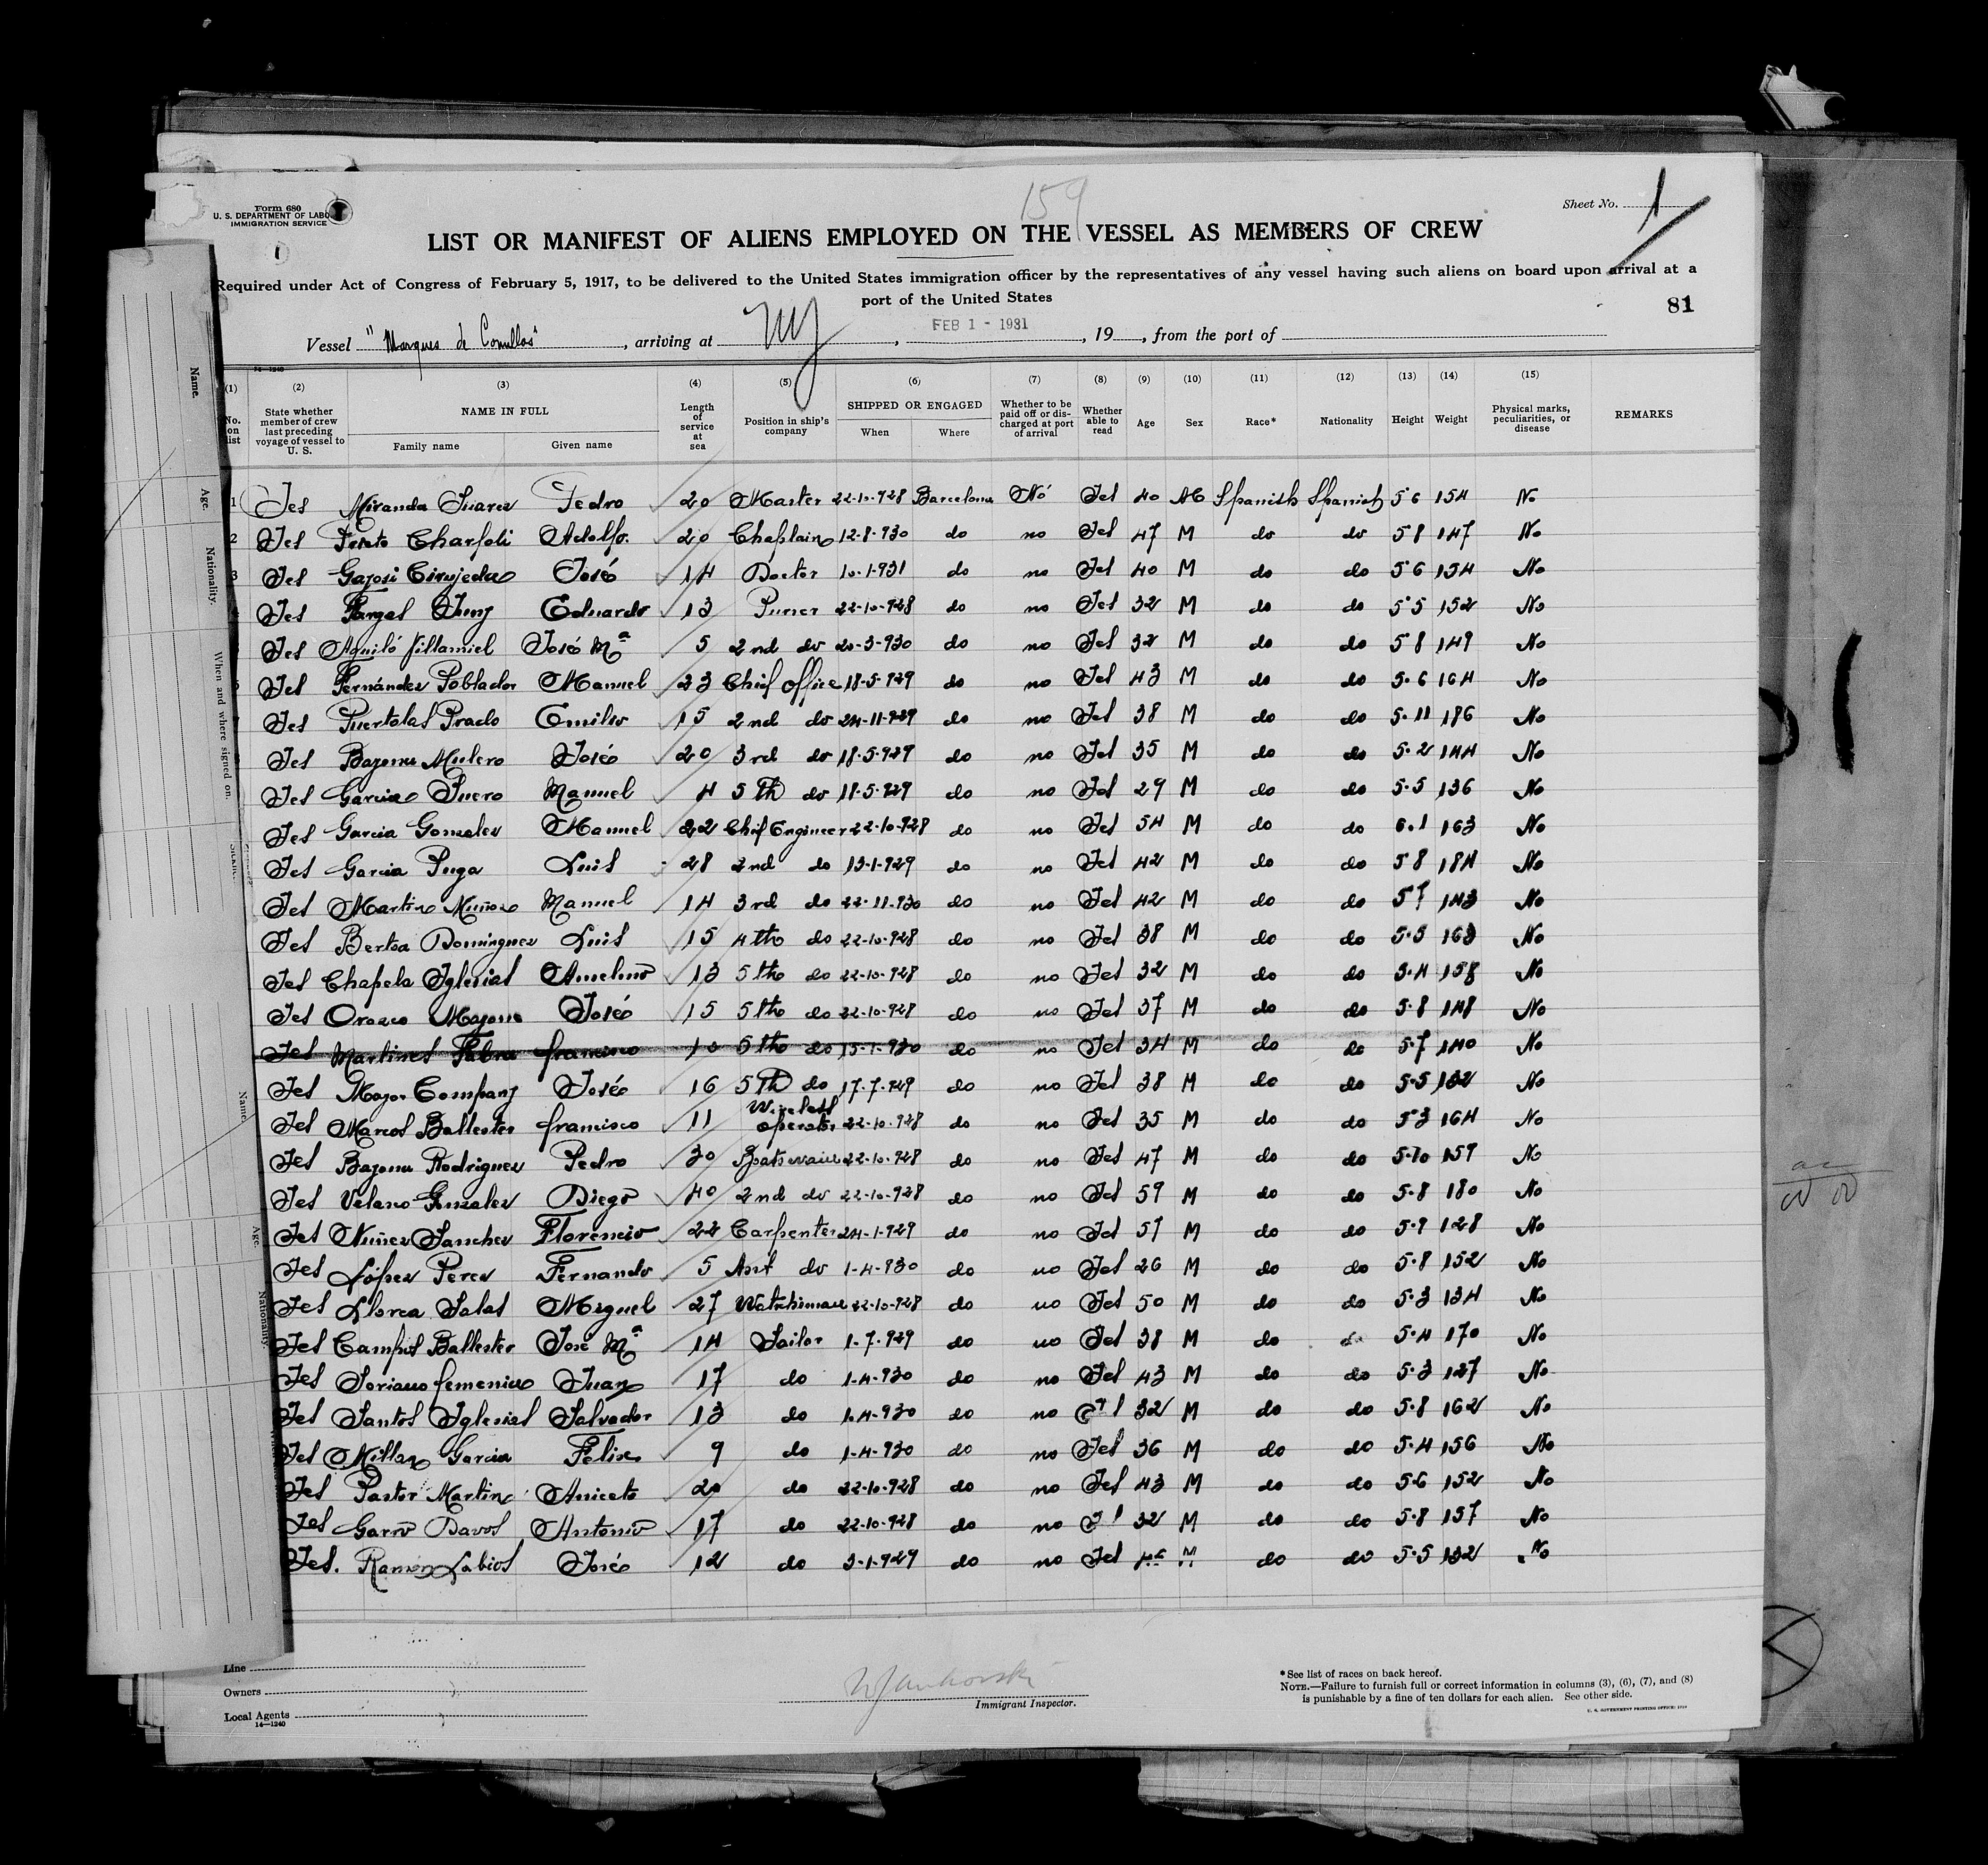 159
Sheet No. 1
Form 680
U. S. DEPARTMENT OF LABO
IMMIGRATION SERVICE
LIST OR MANIFEST OF ALIENS EMPLOYED ON THE VESSEL AS MEMBERS OF CREW
Required under Act of Congress of February 5, 1917, to be delivered to the United States immigration officer by the representatives of any vessel having such aliens on board upon arrival at a
port of the United States
81
Vessel "Marques de Comillas", arriving at NY, FEB 1 - 1931, 19, from the port of
14—1240
(1) (2) (3) (4) (5) (6) (7) (8) (9) (10) (11) (12) (13) (14) (15)
No. on list State whether member of crew last preceding voyage of vessel to U. S. NAME IN FULL Family name Given name Length of service at sea Position in ship's company SHIPPED OR ENGAGED When Where Whether to be paid off or discharged at port of arrival Whether able to read Age Sex Race* Nationality Height Weight Physical marks, peculiarities, or disease REMARKS
1 Yes Miranda Suarez Pedro 20 Master 22-10-928 Barcelona No Yes 40 M Spanish Spanish 5 6 154 No
2 Yes Charfoli Adolfo 20 Chaplain 12-8-930 do no Yes 47 M do do 5 8 147 No
3 Yes Gayosi Cirujeda José 14 Doctor 10-1-931 do no Yes 40 M do do 5 6 154 No
Yes Eduardo 13 Purser 22-10-928 do no Yes 32 M do do 5 5 152 No
Yes Aguiló Villamiel José Mª 5 2nd do 20-3-930 do no Yes 32 M do do 5 8 149 No
Yes Fernández Poblador Manuel 23 Chief office 18-5-929 do no Yes 43 M do do 5-6 164 No
Yes Puertolas Prado Emilio 15 2nd do 24-11-929 do no Yes 38 M do do 5-11 186 No
Yes Bayona Mulero José 20 3rd do 18-5-929 do no Yes 35 M do do 5-2 144 No
Yes Garcia Manuel 4 5th do 18-5-929 do no Yes 29 M do do 5-5 136 No
Yes Garcia Gonzalez Manuel 22 Chief Engineer 22-10-928 do no Yes 54 M do do 6-1 163 No
Yes Garcia Puga Luis 28 2nd do 13-1-929 do no Yes 42 M do do 5 8 184 No
Yes Martin Muñoz Manuel 14 3rd do 22-11-930 do no Yes 42 M do do 5 7 143 No
Yes Bertoa Dominguez Luis 15 4th do 22-10-928 do no Yes 38 M do do 5-5 163 No
Yes Chapela Iglesias Anselmo 13 5th do 22-10-928 do no Yes 32 M do do 5-4 158 No
Yes Orozco José 15 5th do 22-10-928 do no Yes 37 M do do 5-8 148 No
Yes Martines Francisco 10 5th do 15-1-930 do no Yes 34 M do do 5-7 140 No
Yes Mayor Company José 16 5th do 17-7-929 do no Yes 38 M do do 5-5 132 No
Yes Marcos Ballester Francisco 11 Wireless operator 22-10-928 do no Yes 35 M do do 5 3 164 No
Yes Bayona Rodriguez Pedro 30 22-10-928 do no Yes 47 M do do 5-10 159 No
Yes Velasco Gonzalez Diego 40 2nd do 22-10-928 do no Yes 59 M do do 5-8 180 No
Yes Nuñez Sanchez Florencio 22 Carpenter 24-1-929 do no Yes 57 M do do 5-9 128 No
Yes López Perez Fernando 5 Asst do 1-4-930 do no Yes 26 M do do 5-8 152 No
Yes Llorca Salas Miguel 27 Watchman 22-10-928 do no Yes 50 M do do 5-3 134 No
Yes Campos Ballester José Mª 14 Sailor 1-7-929 do no Yes 38 M do do 5-4 170 No
Yes Soriano Femenia Juan 17 do 1-4-930 do no Yes 43 M do do 5-3 127 No
Yes Santos Iglesias Salvador 13 do 1-4-930 do no 32 M do do 5-8 162 No
Yes Millan Garcia Felix 9 do 1-4-930 do no Yes 36 M do do 5-4 156 No
Yes Pastor Martin Aniceto 20 do 22-10-928 do no Yes 43 M do do 5-6 152 No
Yes Garro Davos Antonio 17 do 22-10-928 do no 32 M do do 5-8 157 No
Yes. Ramon Labios José 12 do 3-1-929 do no Yes M do do 5-5 132 No
Name.
Age.
Nationality.
When and where signed on.
Name
Age.
Nationality.
Line
Owners
Local Agents
14—1240
Immigrant Inspector.
*See list of races on back hereof.
NOTE.—Failure to furnish full or correct information in columns (3), (6), (7), and (8)
is punishable by a fine of ten dollars for each alien. See other side.